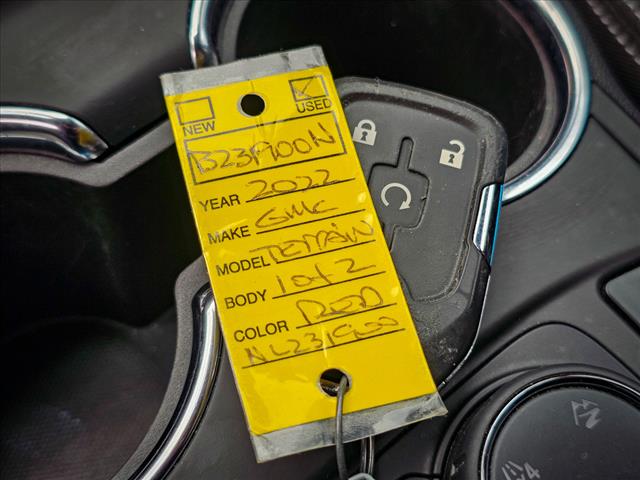 NEW USED
B231900N
YEAR 2022
MAKE GMC
MODEL TERRAIN
BODY 1 of 2
COLOR RED
NL231900
4